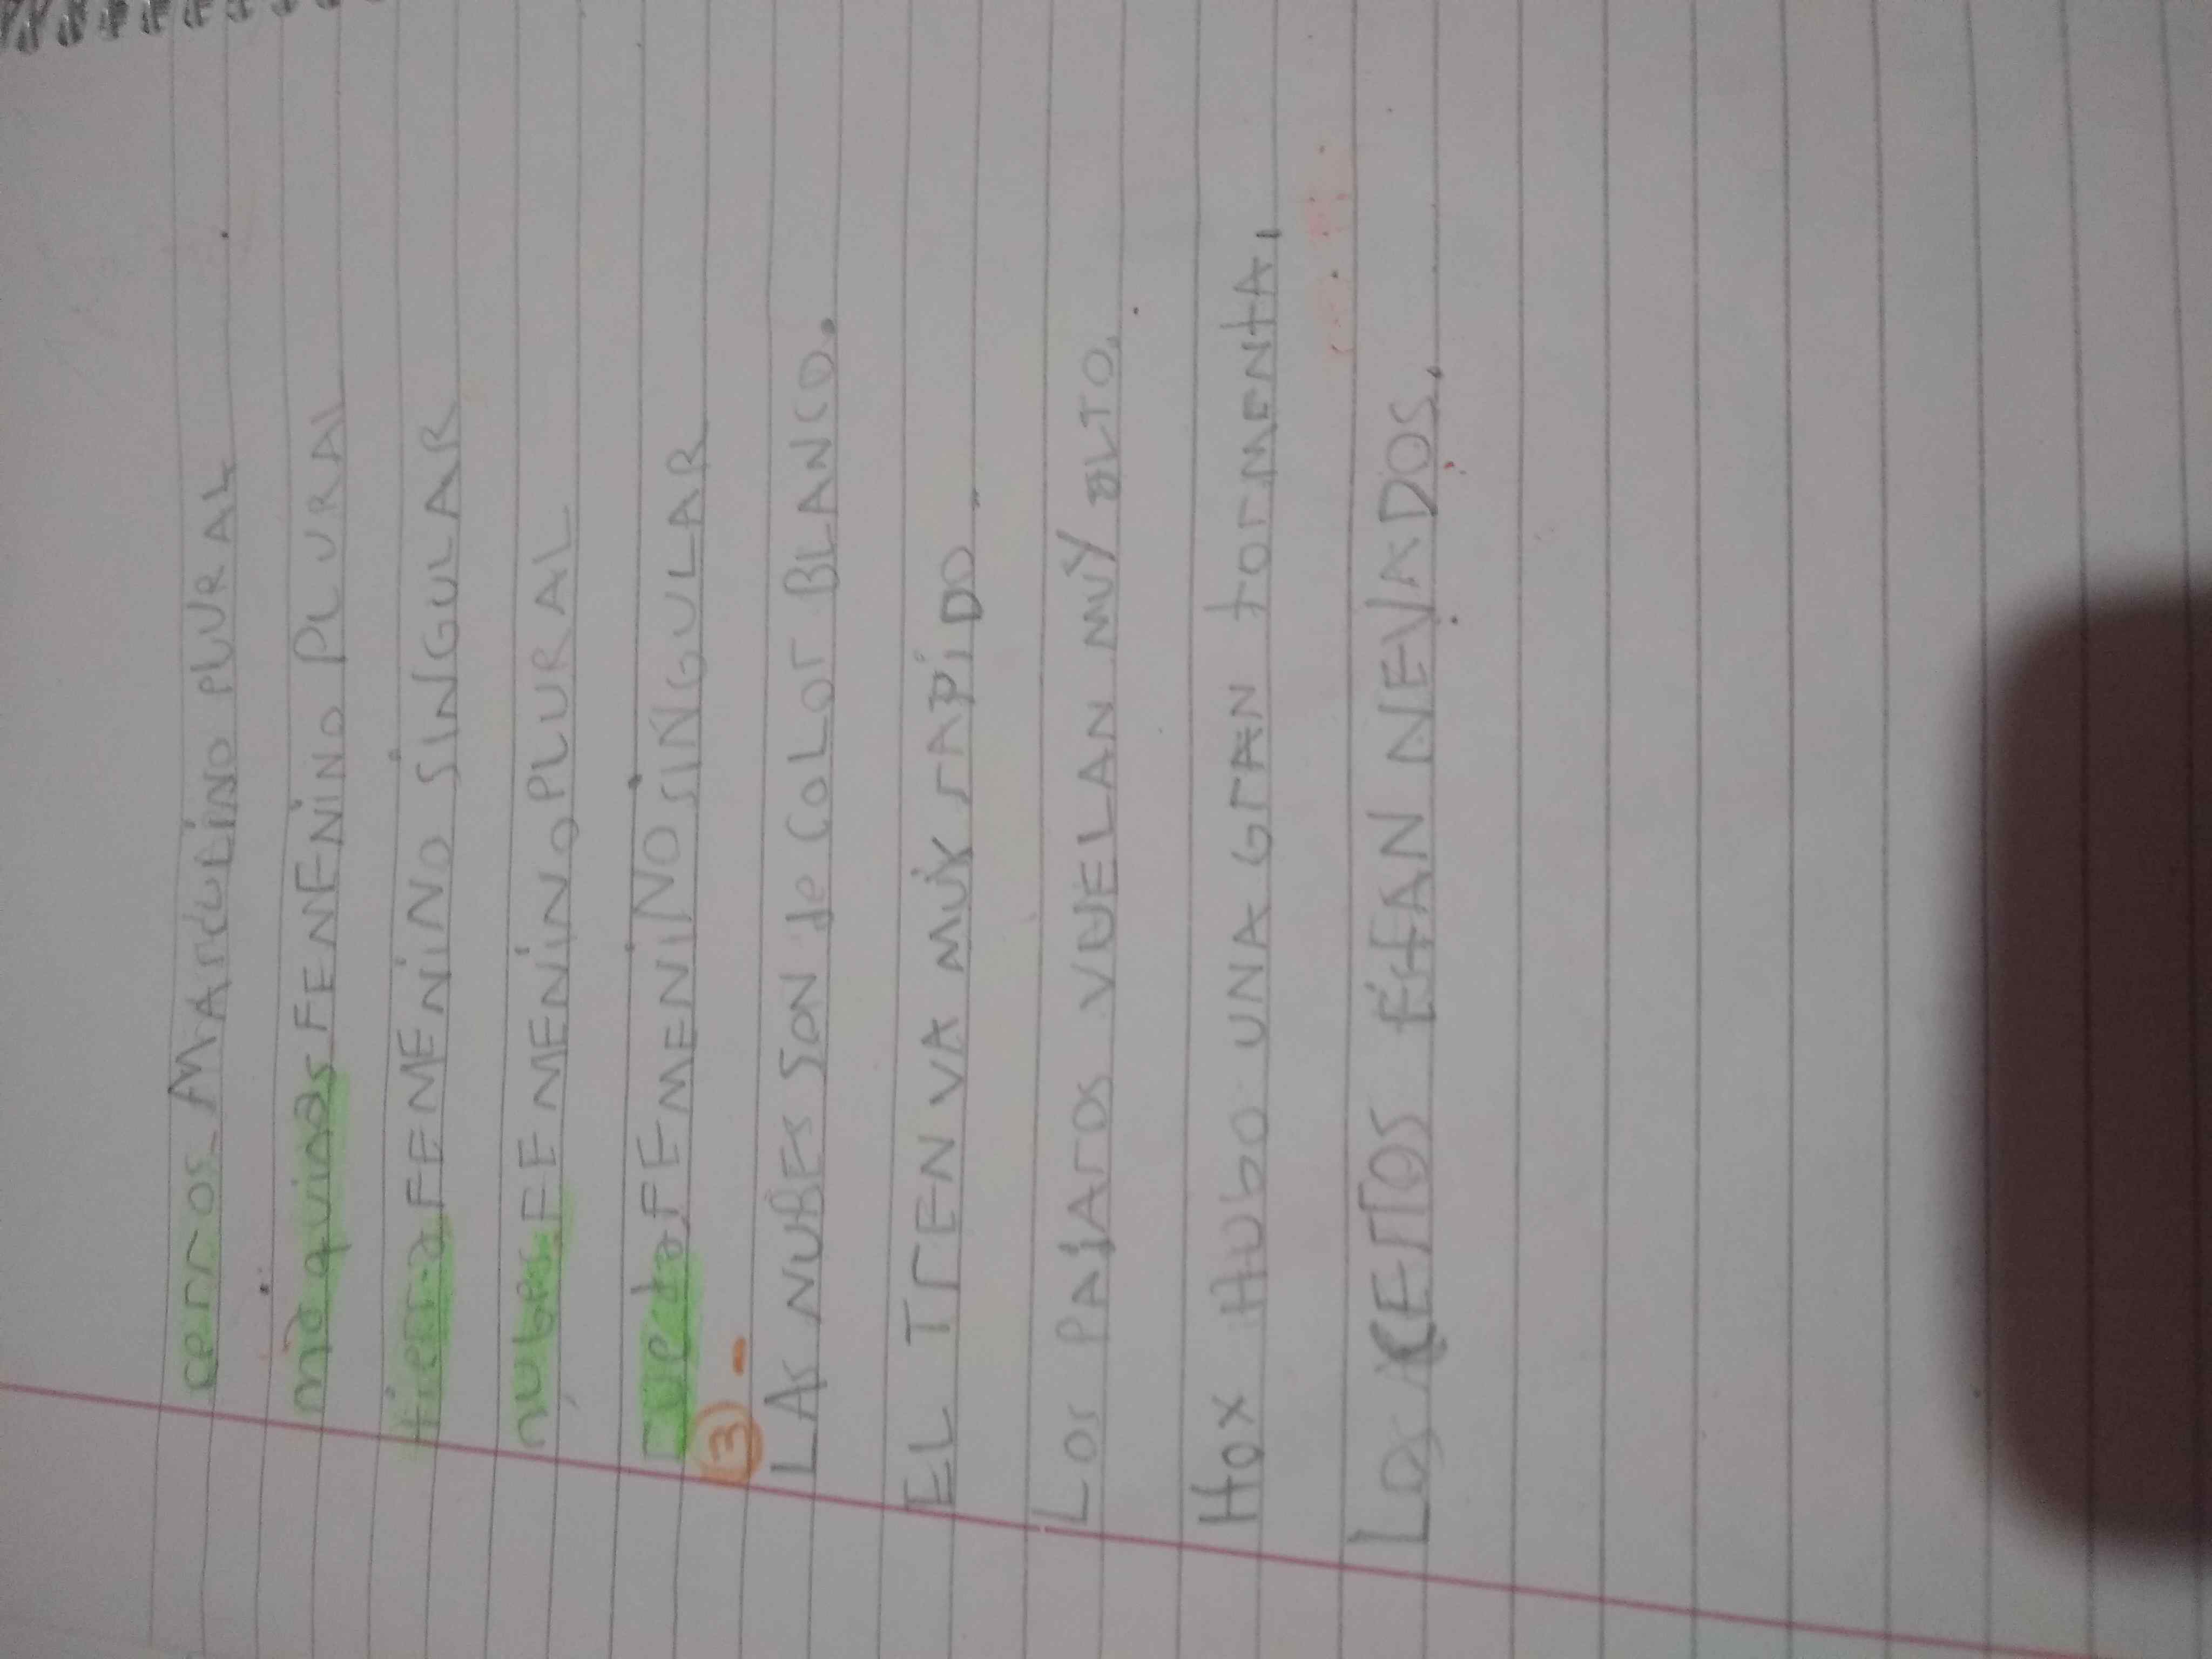 cerros MArculino PLURAL
maquinas FEMENiNO PLURAl
tierra FEMENiNO SiNGULAR
nubes FEMENiNO PLURAL
rueda FEMENiNO SiNGULAR
3 -
LAs NUBEs SON de COLOr BLANCO.
EL TrEN VA MUY rAPiDO.
Los PAjAros VUELAN MUY aLTO.
Hox HUbo UNA GrAN tOrMENtA.
Los CErros EstAN NEVADOS.